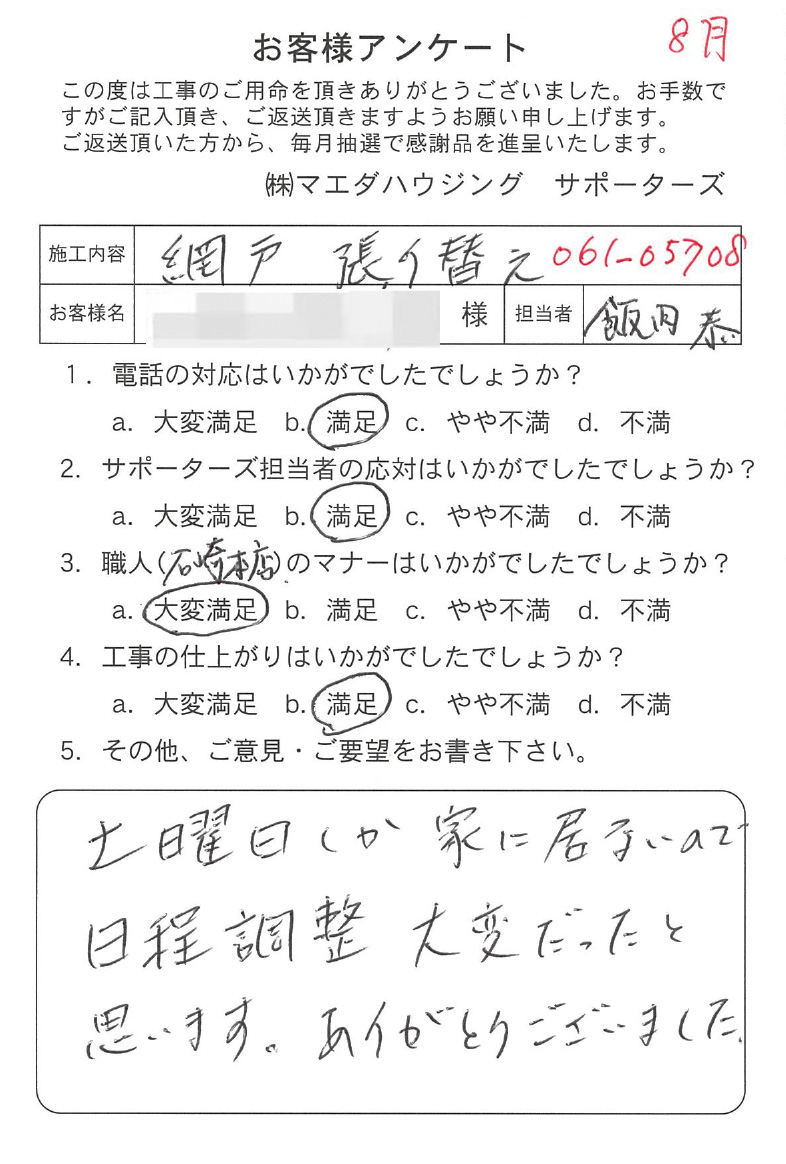 8月
お客様アンケート
この度は工事のご用命を頂きありがとうございました。お手数で
すがご記入頂き、ご返送頂きますようお願い申し上げます。
ご返送頂いた方から、毎月抽選で感謝品を進呈いたします。
㈱マエダハウジング　サポーターズ
施工内容 網戸 張り替え 061-05708
お客様名 様 担当者 飯田 恭
1. 電話の対応はいかがでしたでしょうか？
a. 大変満足 b. 満足 c. やや不満 d. 不満
2. サポーターズ担当者の応対はいかがでしたでしょうか？
a. 大変満足 b. 満足 c. やや不満 d. 不満
3. 職人(石崎本店)のマナーはいかがでしたでしょうか？
a. 大変満足 b. 満足 c. やや不満 d. 不満
4. 工事の仕上がりはいかがでしたでしょうか？
a. 大変満足 b. 満足 c. やや不満 d. 不満
5. その他、ご意見・ご要望をお書き下さい。
土曜日しか 家に居ないので
日程調整 大変だったと
思います。ありがとうございました。